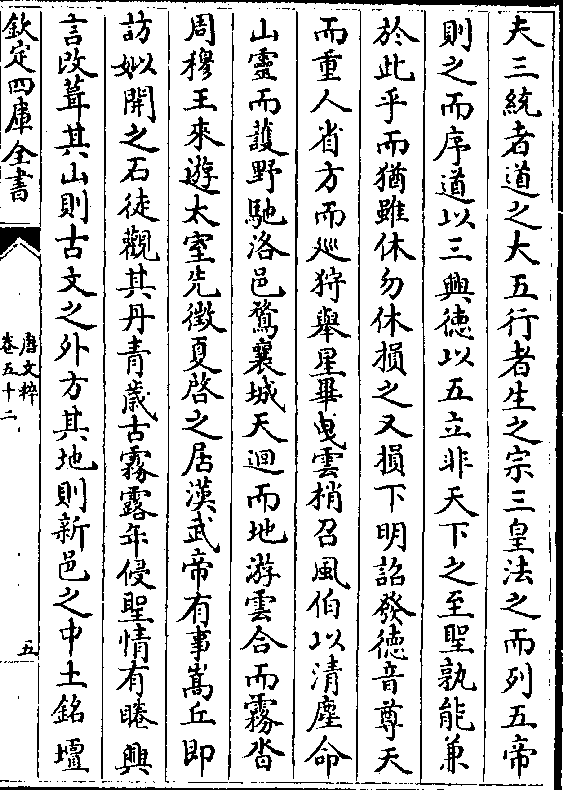 夫三統者道之大五行者生之宗三皇法之而列五帝
則之而序道以三興德以五立非天下之至聖孰能兼
於此乎而猶雖休勿休損之又損下明詔發德音尊天
而重人省方而巡狩舉星畢曵雲梢召風伯以清塵命
山靈而護野馳洛邑鶩襄城天迴而地游雲合而霧沓
周穆王來遊太室先徵夏啓之居漢武帝有事嵩丘即
訪姒開之石徒觀其丹青歲古霧露年侵聖情有睠興
言改葺其山則古文之外方其地則新邑之中土銘壇
欽定四庫全書
唐文粹
卷五十二
五